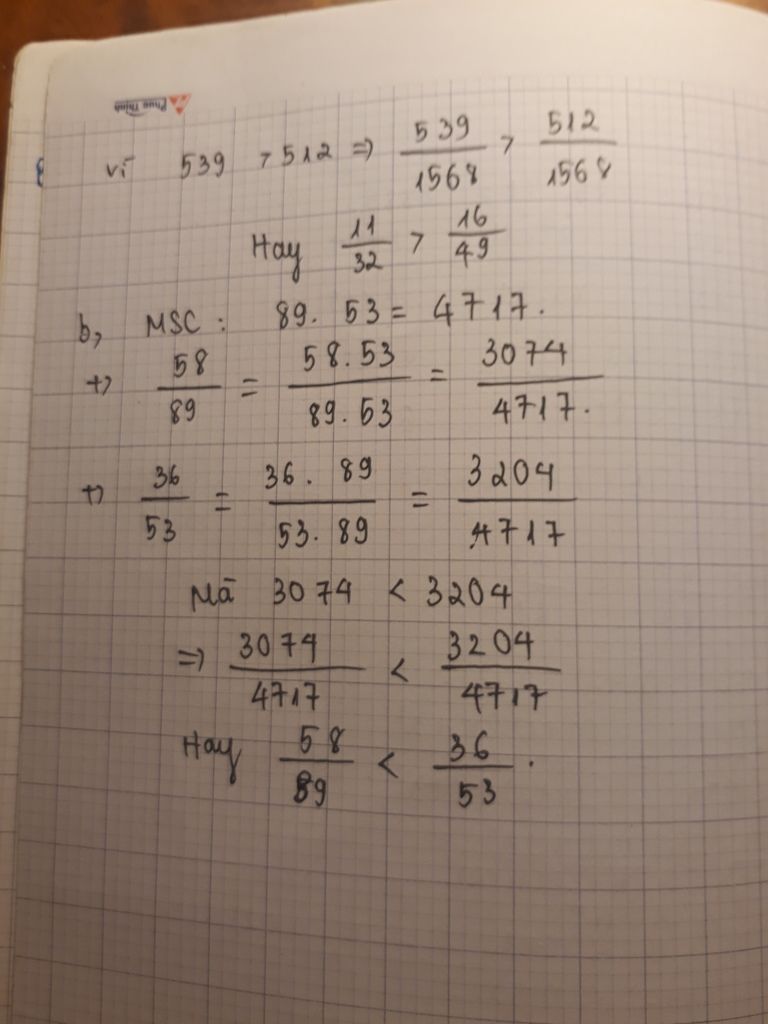 Phuc Thinh
vì 539 > 512 => 539/1568 > 512/1568
Hay 11/32 > 16/49
b, MSC : 89. 53 = 4717.
+) 58/89 = 58.53/89.53 = 3074/4717.
+) 36/53 = 36. 89/53. 89 = 3204/4717
Mà 3074 < 3204
=> 3074/4717 < 3204/4717
Hay 58/89 < 36/53 .